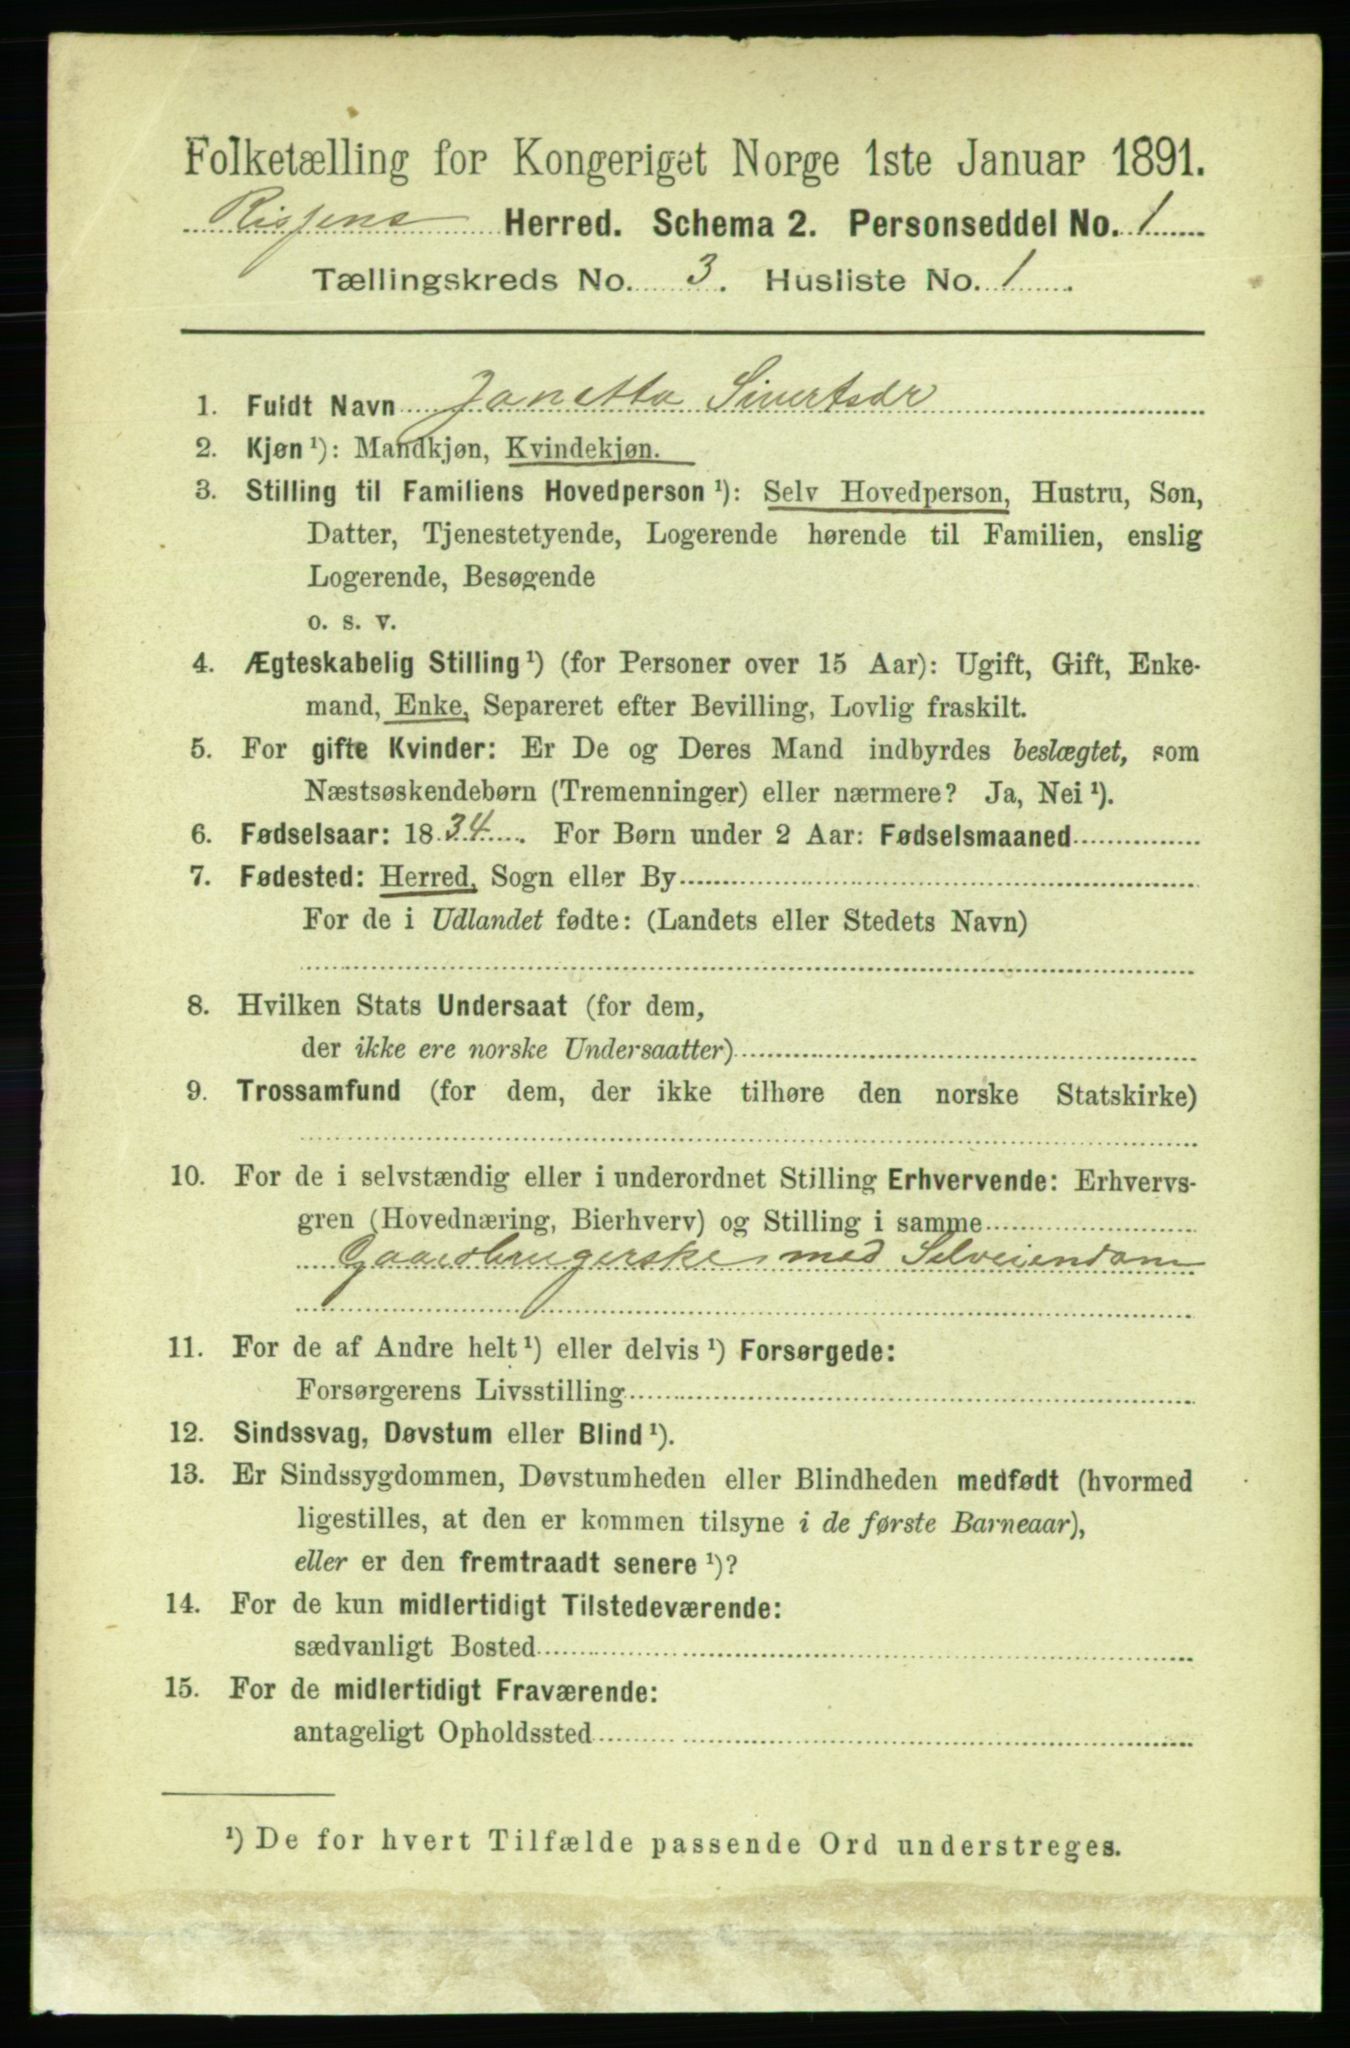 Folketælling for Kongeriget Norge 1ste Januar 1891.
Rissens Herred. Schema 2. Personseddel No. 1
Tællingskreds No. 3. Husliste No. 1.
1. Fuldt Navn Janetta Sivertsdr
2. Kjøn ¹): Mandkjøn, Kvindekjøn.
3. Stilling til Familiens Hovedperson ¹): Selv Hovedperson, Hustru, Søn,
Datter, Tjenestetyende, Logerende hørende til Familien, enslig
Logerende, Besøgende
o. s. v.
4. Ægteskabelig Stilling ¹) (for Personer over 15 Aar): Ugift, Gift, Enke-
mand, Enke, Separeret efter Bevilling, Lovlig fraskilt.
5. For gifte Kvinder: Er De og Deres Mand indbyrdes beslægtet, som
Næstsøskendebørn (Tremenninger) eller nærmere? Ja, Nei ¹).
6. Fødselsaar: 1834. For Børn under 2 Aar: Fødselsmaaned
7. Fødested: Herred, Sogn eller By
For de i Udlandet fødte: (Landets eller Stedets Navn)
8. Hvilken Stats Undersaat (for dem,
der ikke ere norske Undersaatter)
9. Trossamfund (for dem, der ikke tilhøre den norske Statskirke)
10. For de i selvstændig eller i underordnet Stilling Erhvervende: Erhvervs-
gren (Hovednæring, Bierhverv) og Stilling i samme
Gaardbrugerske med Selveiendom
11. For de af Andre helt ¹) eller delvis ¹) Forsørgede:
Forsørgerens Livsstilling
12. Sindssvag, Døvstum eller Blind ¹).
13. Er Sindssygdommen, Døvstumheden eller Blindheden medfødt (hvormed
ligestilles, at den er kommen tilsyne i de første Barneaar),
eller er den fremtraadt senere ¹)?
14. For de kun midlertidigt Tilstedeværende:
sædvanligt Bosted
15. For de midlertidigt Fraværende:
antageligt Opholdssted
¹) De for hvert Tilfælde passende Ord understreges.